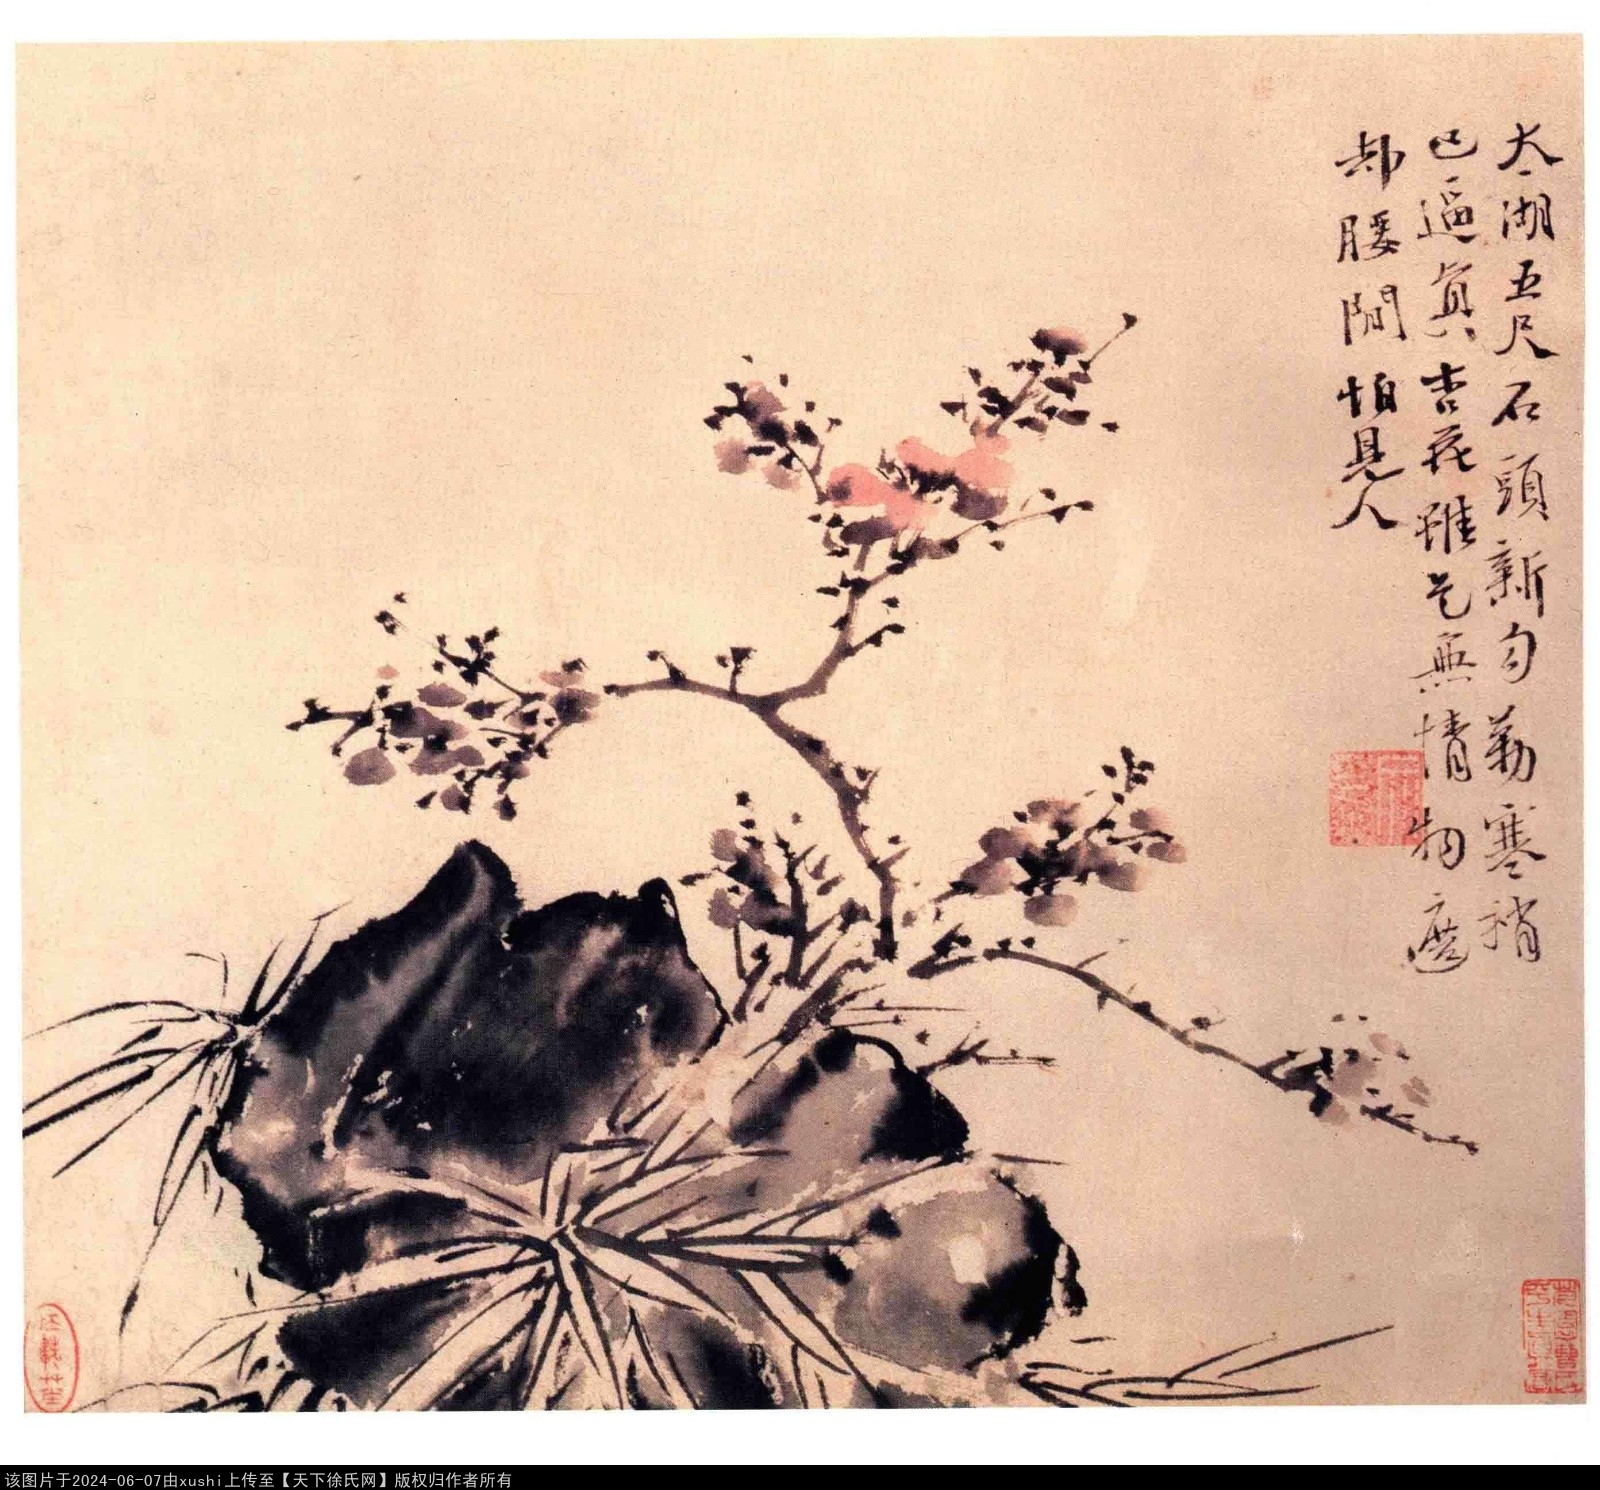 太湖五尺石頭新勾勒寒稍
已逼真杏花雖是無情物應
却腰間怕見人
该图片于2024-06-07由xushi上传至【天下徐氏网】版权归作者所有